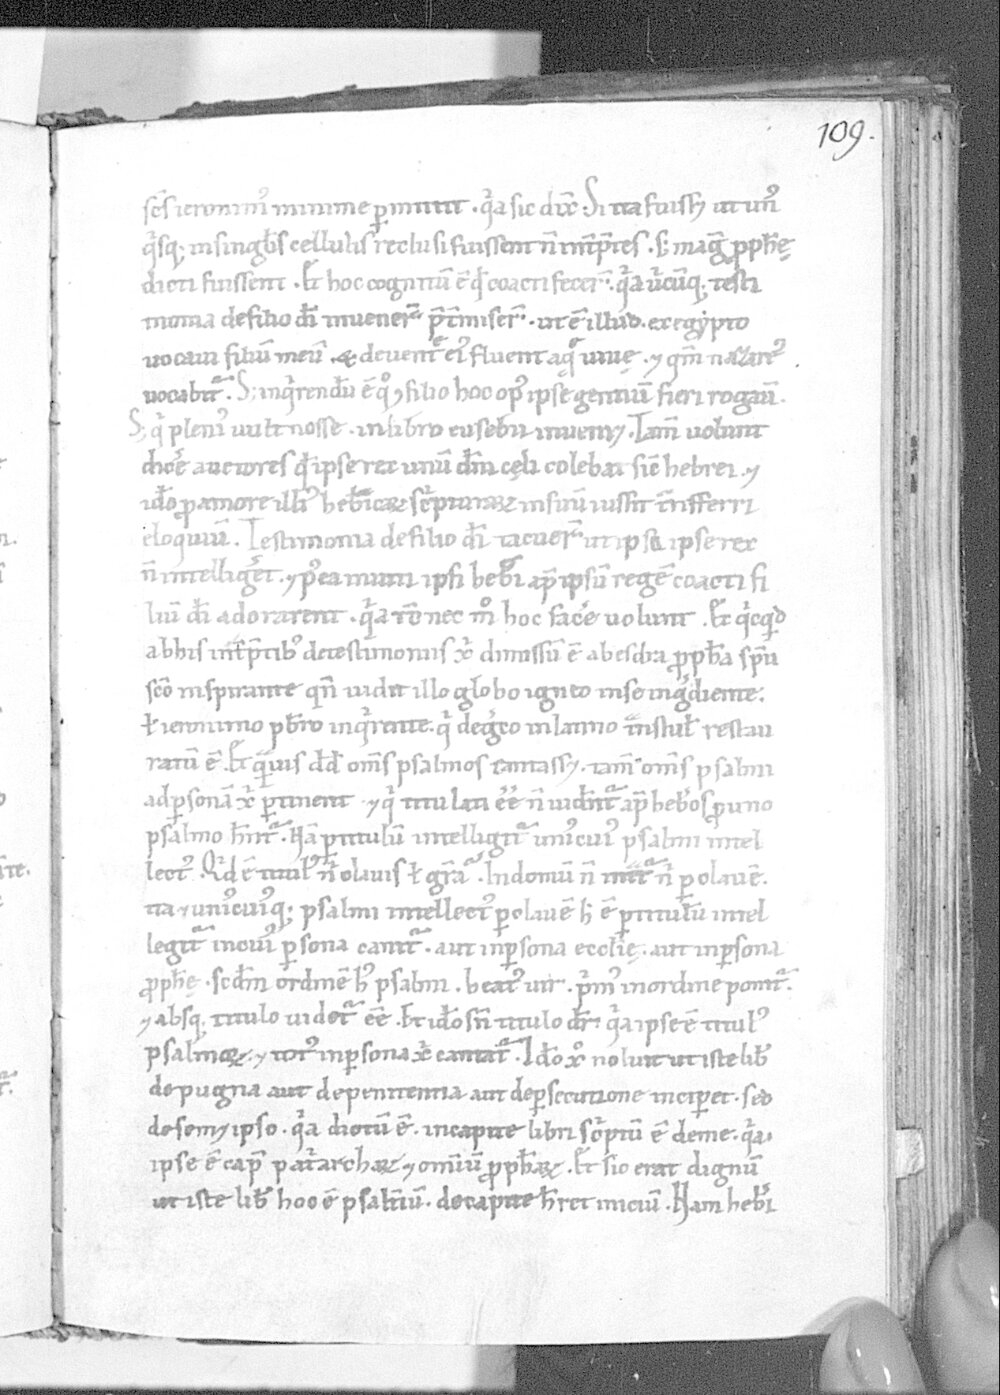 109.
scs̄ ieronimꝰ minime ꝑmittit · qͥa sic dix̄ · Si ita fuissꝫ ut unꝰ
qͥsqꝫ in singlīs cellulis reclusi fuissent n̄ int̄p̄tes · sꝫ magͥ ꝓph̄ę
dicti fuissent · Et hoc cognitū ē qd̄ coacti fecer̄ · qͥa ubicūqꝫ testi
monia de filio dī inuener̄ p̄t̄miser̄ · ut ē illud · ex egypto
uocaui filiū meū · & de uentͤ eiꝰ fluent aqͤ uiuę · ⁊ qm̄ nazareꝰ
uocabit̄ · Sꝫ inqͥrendū ē qͦ ⁊ filio hoc opꝰ ipse gentiū fieri rogauit̄ ·
Sꝫ qͥ pleniꝰ uult nosse · in libro eusebii inueniꝫ · Tam̄ uolunt
dicͤe auctores qd̄ ipse rex unū dm̄ cęli colebat sic̄ hebrei · ⁊
ido̅ ꝓ amore illiꝰ hebͣicaꝝ sc̄pturaꝝ in suū iussit tͣnsferri
eloquiū · Testimonia de filio dī tacuer̄ ut ipsa ipse rex
n̄ intelligͤet · ⁊ pꝰea muniti ipsi hebͤi ap̄ ipsū regē coacti fi
liū dī adorarent · qͥa ro̅ nec mͦ hoc facͤe uolunt · Et qͥcqͥd
ab his int̄p̄tibꝰ de testimoniis xͥ dimissū ē ab esdra ꝓph̄a spū
sco̅ inspirante qn̄ uidit illo globo igneo in se ingͤdiente ·
ł ieronimo pb̄ro inqͥrente · qͥ de gͤco in latino tͣnstul̄ restau
ratū ē · Et qͣmuis dd̄ om̄s psalmos cantassꝫ · tam̄ om̄s psalmi
ad ꝑsonā xͥ ꝑtinent · ⁊ qͥ titulati ēe n̄ uidēnt̄ ap̄ hebͤos ꝓ uno
psalmo hn̄t̄ · Nā ꝑ titulū intelligit̄ unꝰcuiꝰ psalmi intel
lectꝰ · Qͥd ē titulꝰ nͥ clauis ł gͣm̄a · In domū n̄ intͣt̄ nͥ ꝑ clauē ·
ita ⁊ unꝰcuiꝰqꝫ psalmi intellectꝰ ꝑ clauē h̄ ē ꝑ titulū intel
legit̄ in cuiꝰ ꝑsona canit̄ · aut in ꝑsona ecclię · aut in ꝑsona
ꝓph̄ę · Scd̄m ordinē hͥꝰ psalmi · beatꝰ uir · pͥmꝰ in ordine ponit̄ ·
⁊ absqꝫ titulo uidet̄ ēe · Et ido̅ sn̄ titulo dr̄ · qͥa ipse ē titulꝰ
psalmoꝝ · ⁊ totꝰ in ꝑsona xͥ cantat̄ · Ido̅ xͦ noluit ut iste lib̄
de pugna aut de penitentia aut de ꝑsecutione inciperet · sed
de semꝫ ipso · qͥa dictū ē · in capite libri scͥptū ē de me · qͥa
ipse ē cap̄ patͥarchaꝝ ⁊ omniū ꝓph̄aꝝ · Et sic erat dignū
ut iste lib̄ hoc ē psalt̄iū · de capite h̄ret iniciū · Nam hebͤi